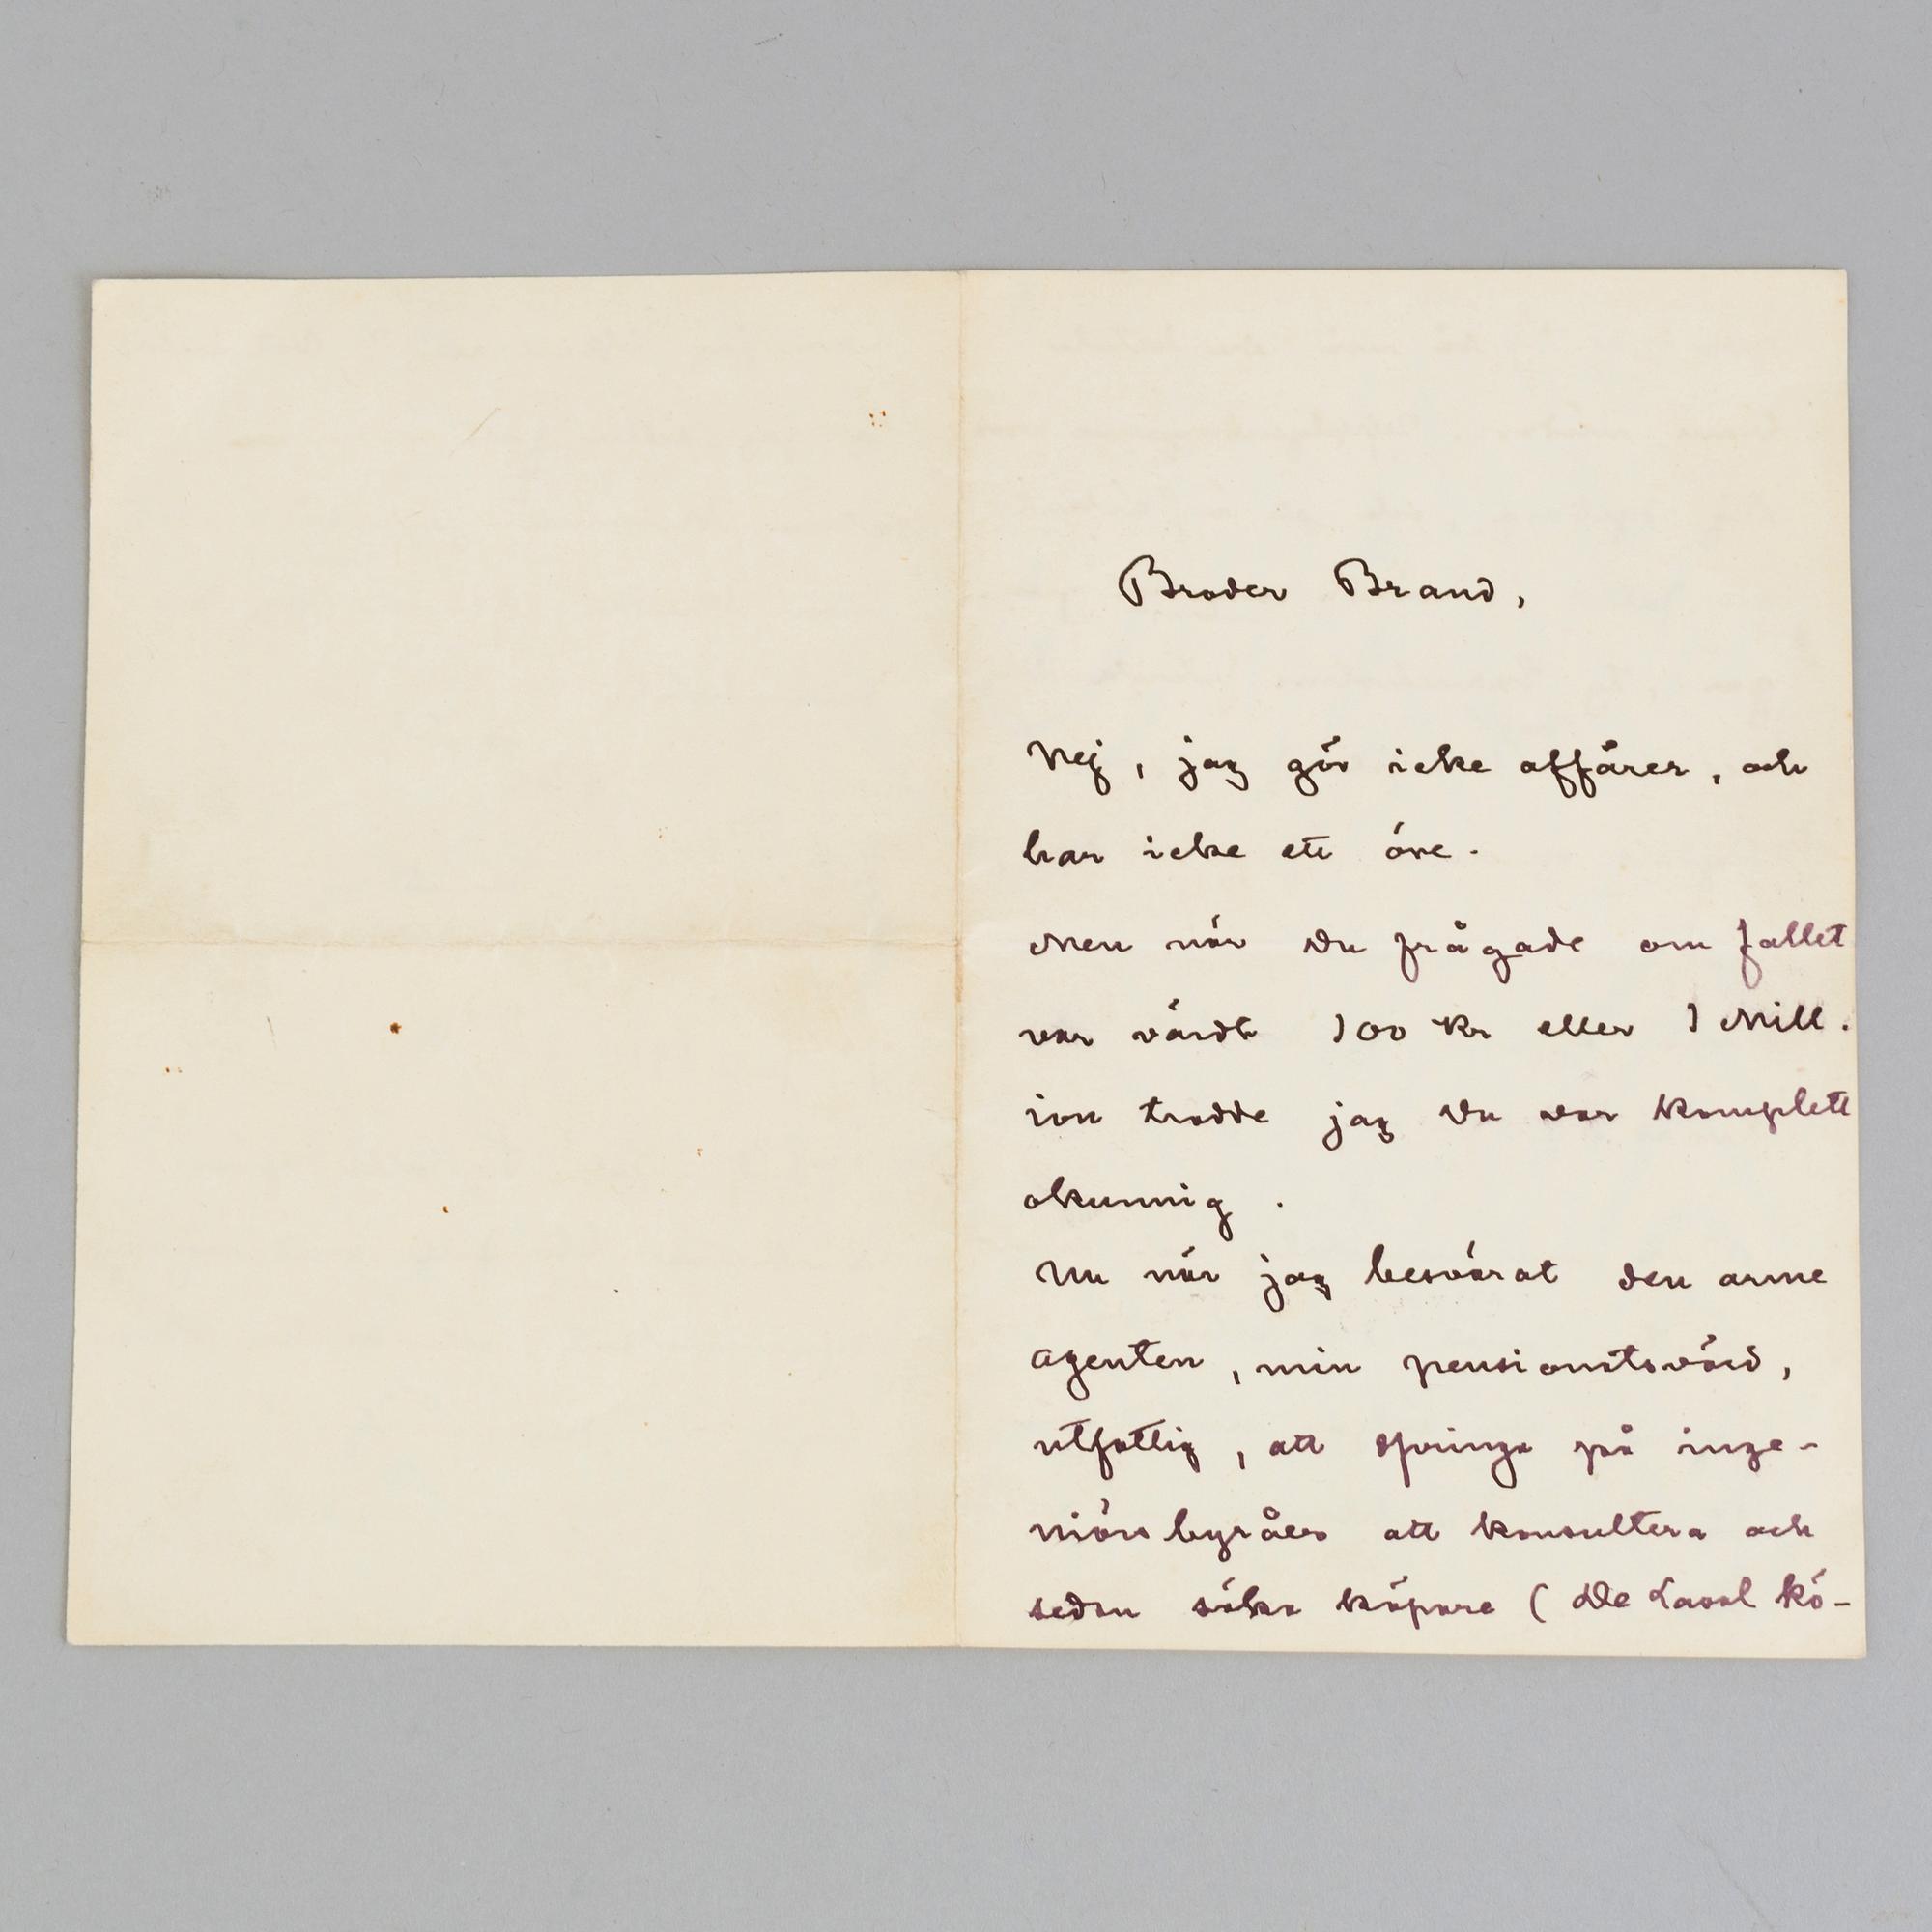 Broder Brand,
Nej, jag gör icke affärer, och
har icke ett öre.
Men när Du frågade om fallet
var värdt 100 Kr eller 1 Mill.
ion trodde jag Du var komplett
okunnig.
Nu när jag besvärat den arme
agenten, min pensionatsvärd,
utfattig, att springa på inge-
niörsbyråer att konsultera och
sedan söka köpare (De Laval kö-